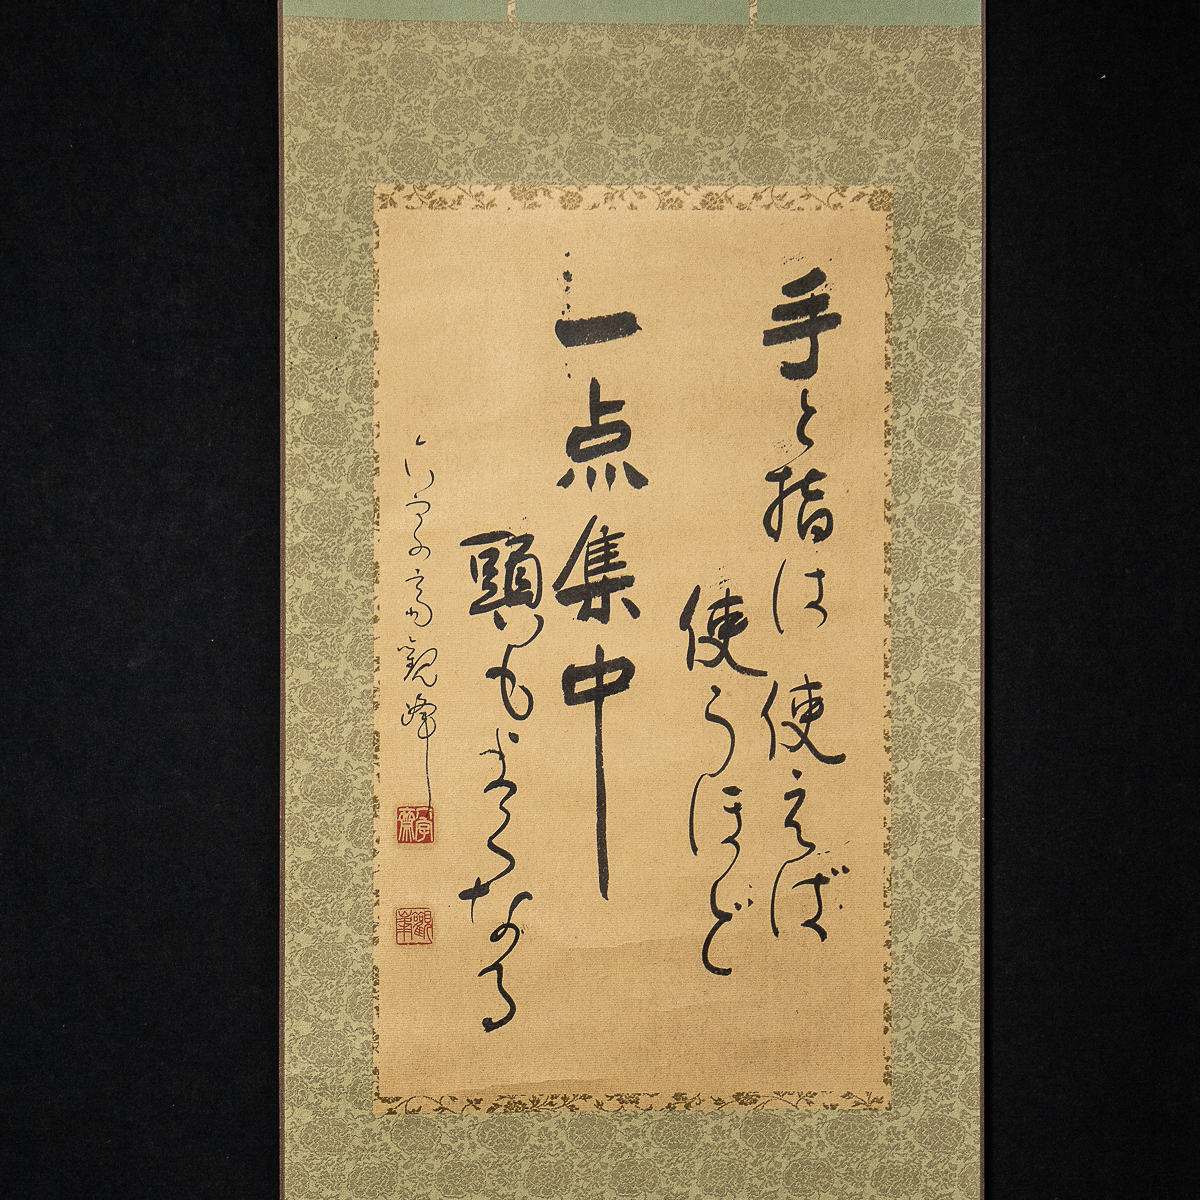 手と指は使えば
使うほど
一点集中
頭もよくなる
観峰